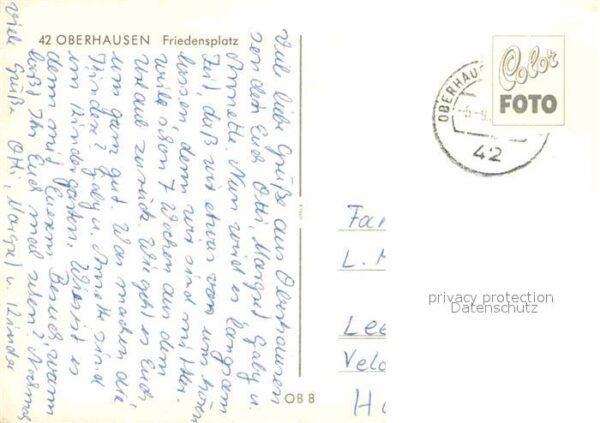 42 OBERHAUSEN Friedensplatz
Viele liebe Grüße aus Oberhausen
senden Euch Otti, Margret Gaby u.
Annette. Nun wird es langsam
Zeit, daß wir etwas von uns hören
lassen, denn wir sind mittler-
weile schon 7 Wochen aus dem
Urlaub zurück. Wie geht es Euch,
uns ganz gut. Was machen die
Kinder? Gaby u. Annette sind
im Kindergarten. Wie ist es
denn mit Eurem Besuch, wann
laßt Ihr Euch mal sehen?
viele Grüße Otti, Margret u. Kinder
Color
FOTO
OBERHAUS
42
Fa
L. M
Lee
Veld
H
privacy protection
Datenschutz
OB 8